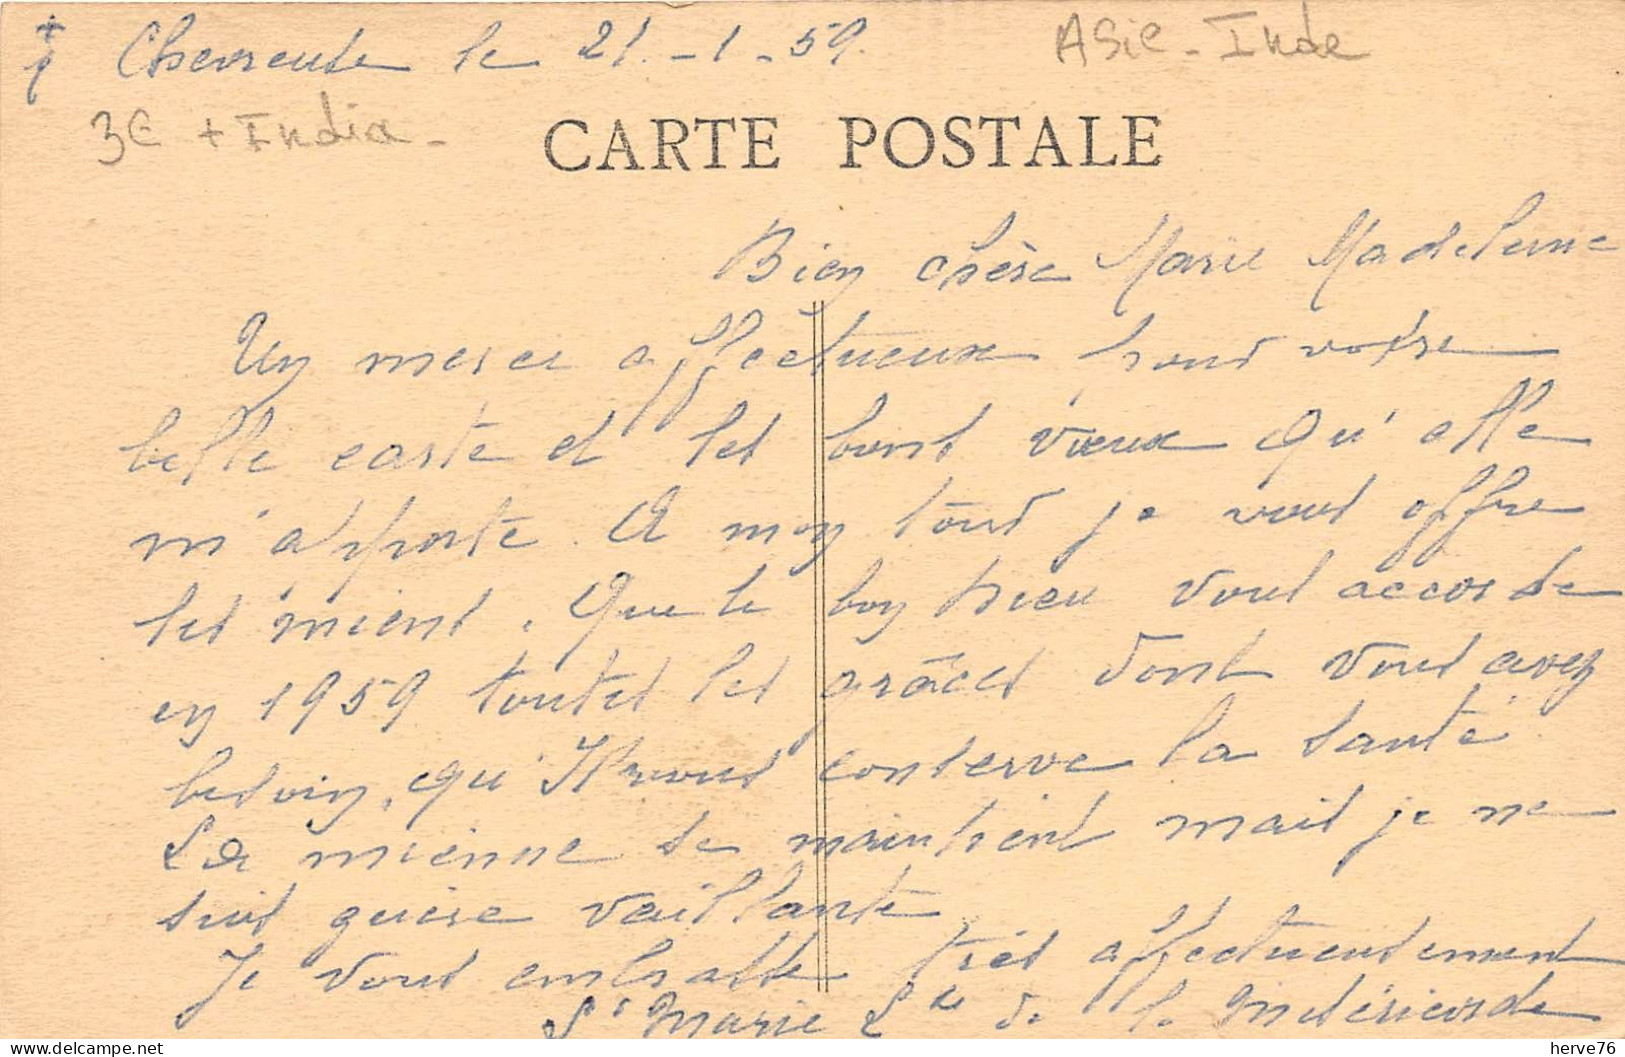 le 21-1-59.
Asie - Inde
3€ + India -
CARTE POSTALE
Bien chère Marie Madeleine
Un merci affectueux pour votre
belle carte et les bons vœux qu'elle
m'apporte. A mon tour je vous offre
les miens. Que le bon Dieu vous accorde
en 1959 toutes les grâces dont vous avez
besoin, qu'Il vous conserve la santé.
La mienne se maintient mais je ne
suis guère vaillante
Je vous embrasse très affectueusement
Sr Marie de la Miséricorde
herve76